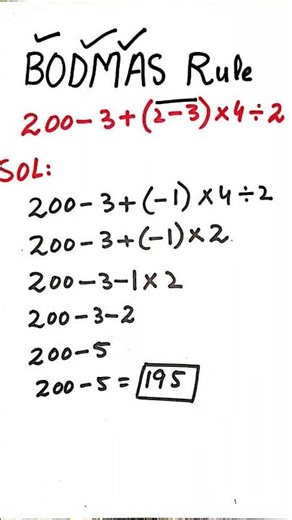 BODMAS Rule
200-3+(2-3)×4÷2
SOL:
200-3+(-1)×4÷2
200-3+(-1)×2
200-3-1×2
200-3-2
200-5
200-5=195